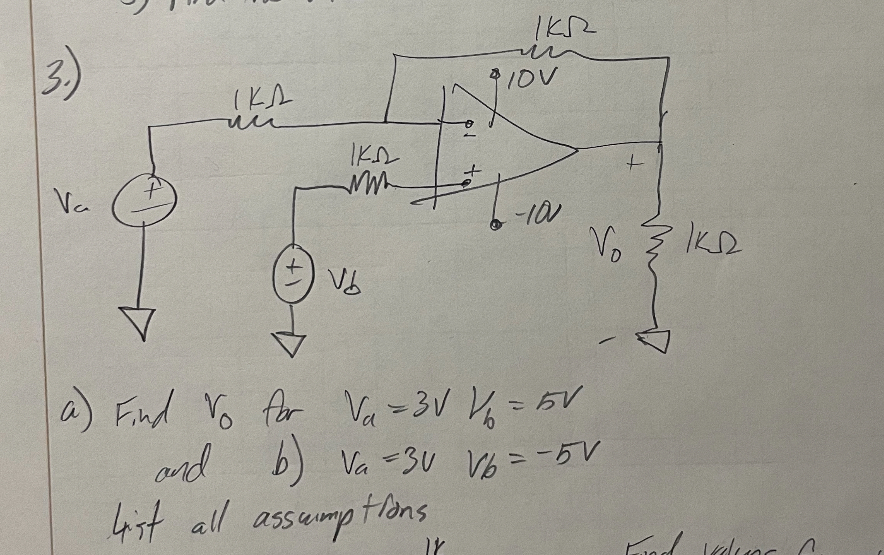 3.)
1KΩ
10V
1KΩ
-
1KΩ
+
+
Va
+
-
-10V
+
Vo
1KΩ
+
-
Vb
-
a) Find Vo for Va = 3V Vb = 5V
and b) Va = 3V Vb = -5V
List all assumptions